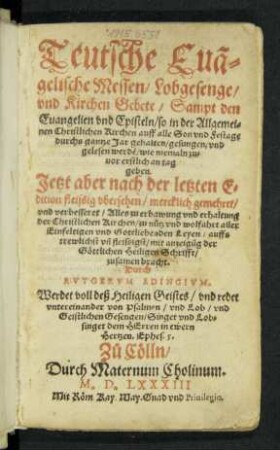 Teutsche Euā-
gelische Messen/ Lobgesenge/
vnd Kirchen Gebete/ Sampt den
Euangelien vnd Episteln/ so in der Allgemei-
nen Christlichen Kirchen auff alle Son vnd Festage
durchs gantze Jar gehalten/ gesungen/ vnd
gelesen werdē/ wie niemaln zu-
uor erstlich an tag
geben.
Jetzt aber nach der letzten E-
dition fleissig vbersehen/ mercklich gemehret/
vnd verbesseret/ Alles zu erbawung vnd erhaltung
der Christlichen Kirchen/ zu nütz vnd wolfahrt aller
Einfeltigen vnd Gottliebenden Leyen: auffs
trewlichst vñ fleissigst/ mit anzeigūg der
Göttlichen Heiligen Schrifft/
zusamen bracht.
Durch
RVTGERVM EDINGIVM.
Werdet voll deß Heiligen Geistes/ vnd redet
vntereinander von Psalmen/ vnd Lob/ vnd
Geistlichen Gesengen/ Singet vnd Lob-
singet dem HErren in ewern
Hertzen. Ephes. 5.
Zů Cölln/
Durch Maternum Cholinum.
M. D. LXXXIII
Mit Röm. Kay. May. Gnad vnd Priuilegio.